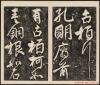 古柏行
孔明廟前
有老柏柯如
青銅根如石